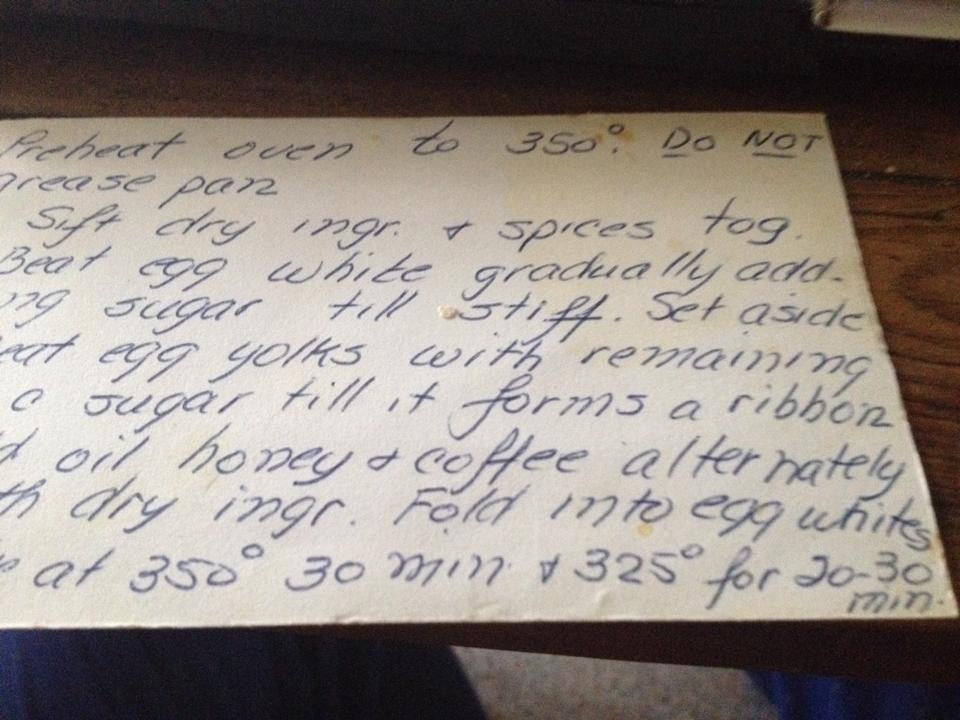 Preheat oven to 350°. Do NOT
grease pan
Sift dry ingr. & spices tog.
Beat egg white gradually add-
ng sugar till stiff. Set aside
eat egg yolks with remaining
c sugar till it forms a ribbon
d oil honey & coffee alternately
th dry ingr. Fold into egg whites
at 350° 30 min & 325° for 20-30
min.